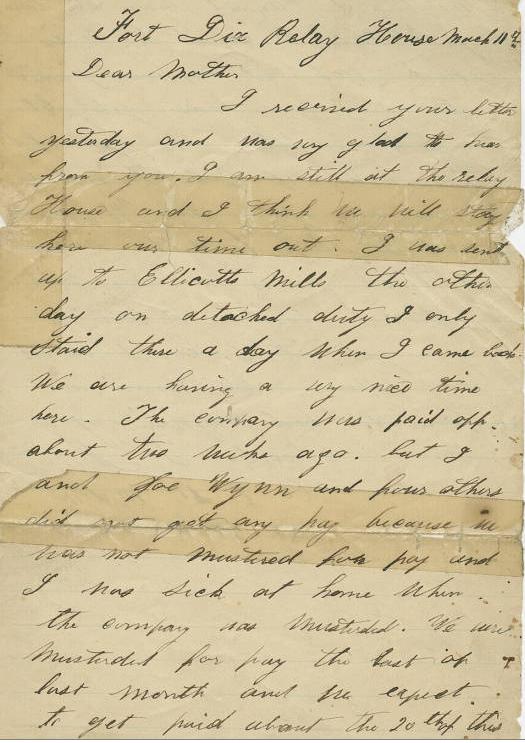 Fort Dix Relay House March 11th
Dear Mother
I received your letter
yesterday and was very glad to hear
from you. I am still at the relay
House and I think we will stay
here our time out. I was sent
up to Ellicotts Mills the other
day on detached duty I only
staid there a day when I came back.
We are having a very nice time
here. The company was paid off.
about two weeks ago. but I
and Joe Wynn and four others
did not get any pay because he
was not mustered for pay and
I was sick at home when.
the company was musterded. We were
musterded for pay the last of
last month and we expect.
to get paid about the 20th of this